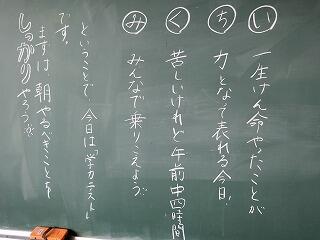 い 一生けん命やったことが
ち 力となって表れる今日。
く 苦しいけれど午前中四時間
み みんなで乗りこえよう。
ということで、今日は「学力テスト」
です。
まずは朝やるべきことを
しっかりやろう。